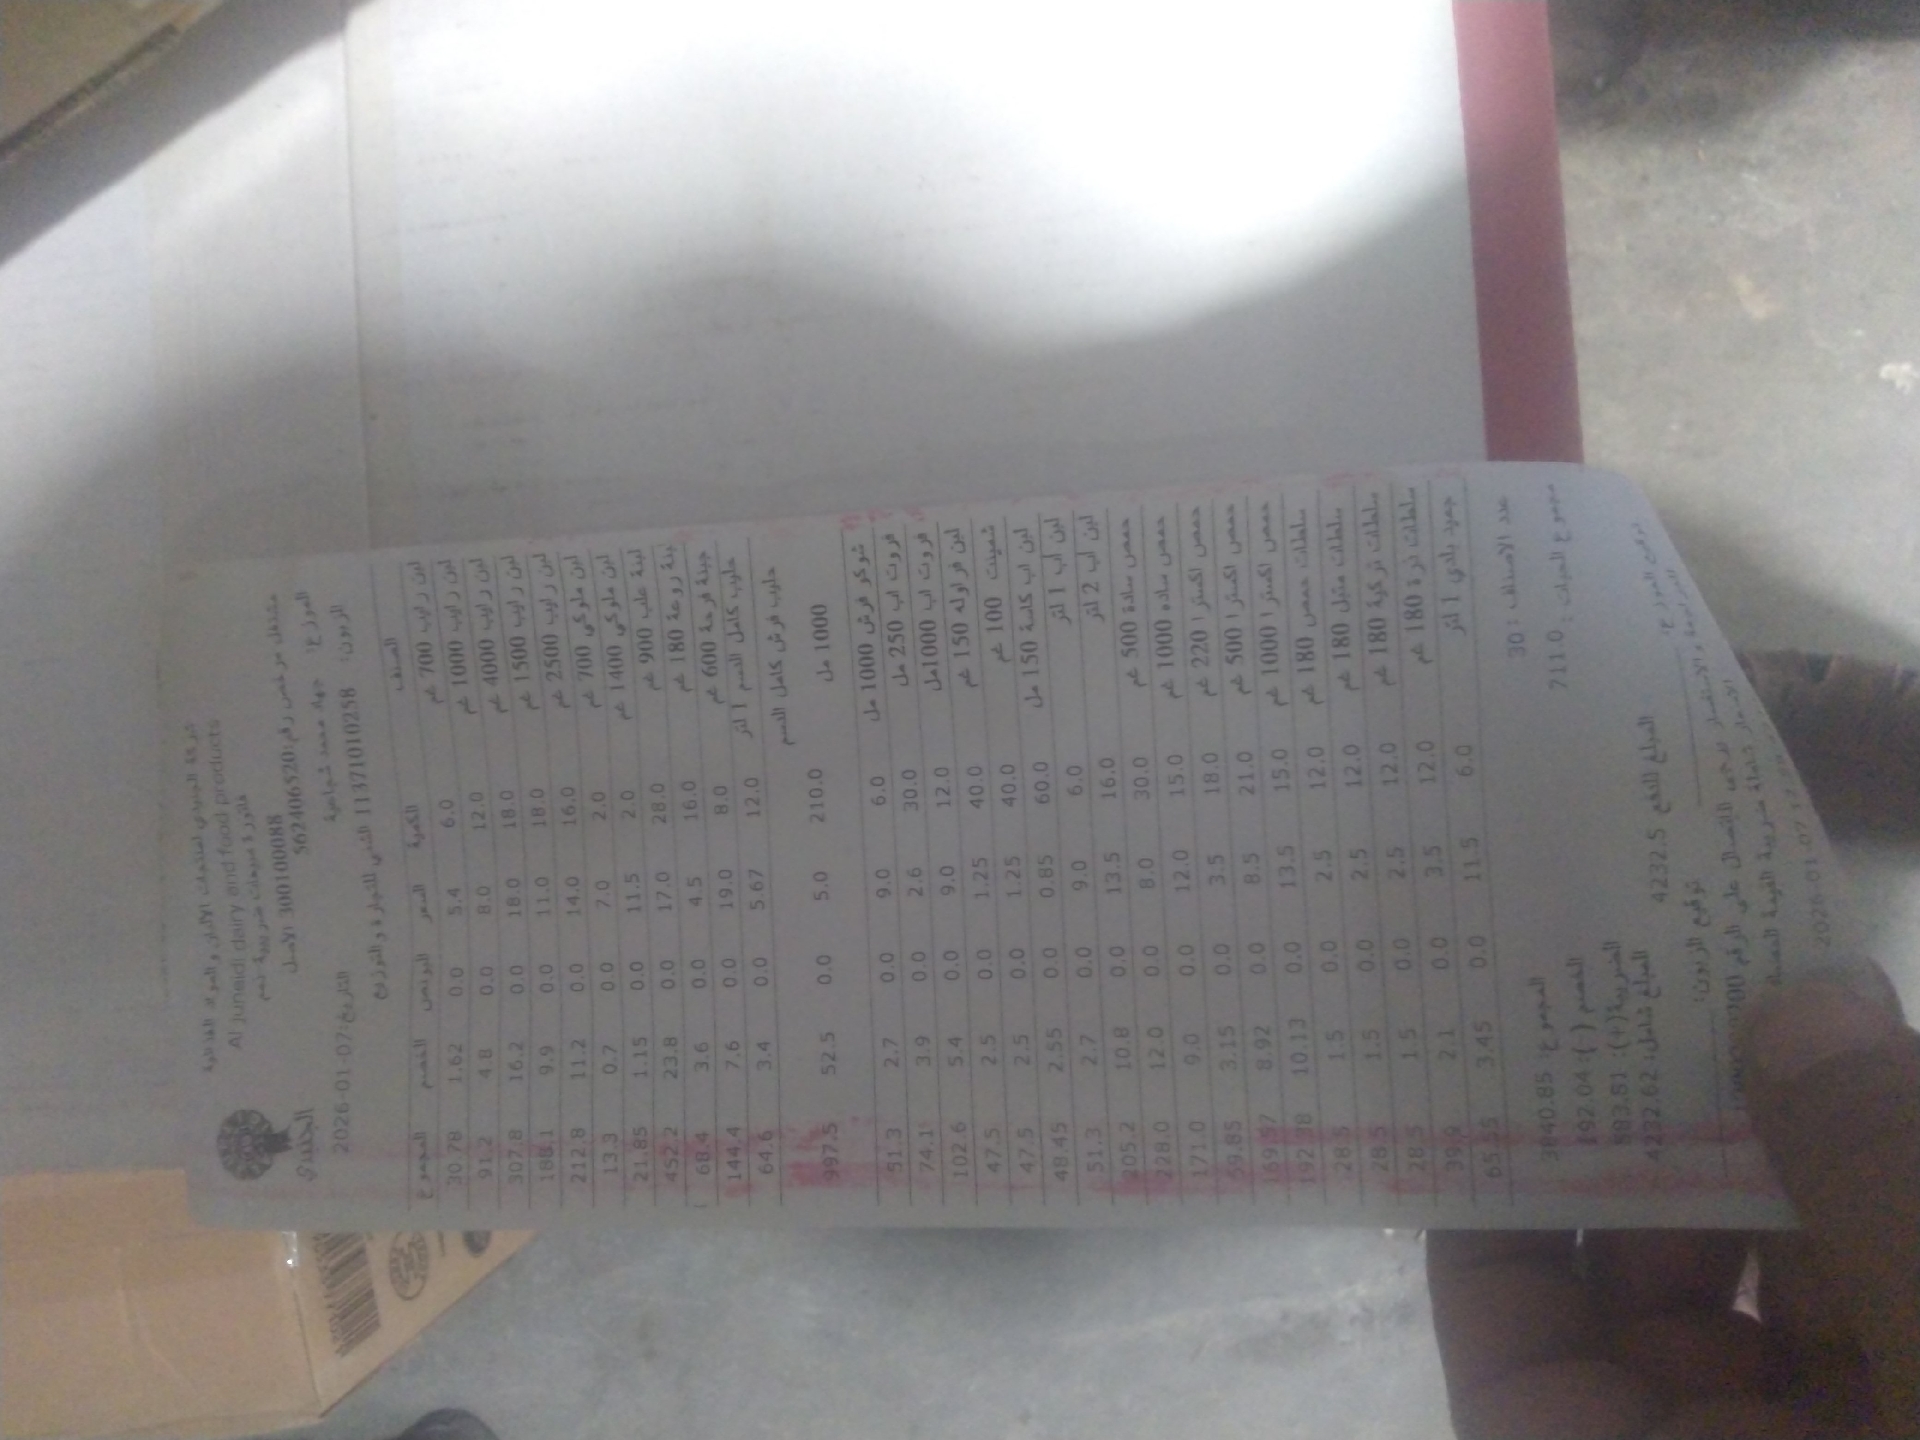 شركة الجنيدي لمنتجات الألبان والمواد الغذائية
Al Juneidi dairy and food products
الجنيدي
فاتورة مبيعات ضريبية رقم
300100088 الاصل
مشتغل مرخص رقم: 562406520
الموزع: جهاد محمد
الزبون: 11371010258 للتجارة والتوزيع
التاريخ: 2026-01-07
الصنف الكمية السعر البونص الخصم المجموع
لبن رايب 700 غم 6.0 5.4 0.0 1.62 30.78
لبن رايب 1000 غم 12.0 8.0 0.0 4.8 91.2
لبن رايب 4000 غم 18.0 18.0 0.0 16.2 307.8
لبن رايب 1500 غم 18.0 11.0 0.0 9.9 188.1
لبن رايب 2500 غم 16.0 14.0 0.0 11.2 212.8
لبن ملوكي 700 غم 2.0 7.0 0.0 0.7 13.3
لبن ملوكي 1400 غم 2.0 11.5 0.0 1.15 21.85
لبنة علب 900 غم 28.0 17.0 0.0 23.8 452.2
روعة 180 غم 16.0 4.5 0.0 3.6 68.4
جبنة فرحة 600 غم 8.0 19.0 0.0 7.6 144.4
حليب كامل الدسم 1 لتر 12.0 5.67 0.0 3.4 64.6
حليب فرش كامل الدسم
1000 مل 210.0 5.0 0.0 52.5 997.5
شوكو فرش 1000 مل 6.0 9.0 0.0 2.7 51.3
فروت اب 250 مل 30.0 2.6 0.0 3.9 74.1
فروت اب 1000مل 12.0 9.0 0.0 5.4 102.6
لبن فراوله 150 غم 40.0 1.25 0.0 2.5 47.5
شمينت 100 غم 40.0 1.25 0.0 2.5 47.5
لبن اب كاسة 150 مل 60.0 0.85 0.0 2.55 48.45
لبن اب 1 لتر 6.0 9.0 0.0 2.7 51.3
لبن اب 2 لتر 16.0 13.5 0.0 10.8 205.2
حمص سادة 500 غم 30.0 8.0 0.0 12.0 228.0
حمص ساده 1000 غم 15.0 12.0 0.0 9.0 171.0
حمص اكسترا 220 غم 18.0 3.5 0.0 3.15 59.85
حمص اكسترا 500 غم 21.0 8.5 0.0 8.92 169.57
حمص اكسترا 1000 غم 15.0 13.5 0.0 10.13 192.38
سلطات حمص 180 غم 12.0 2.5 0.0 1.5 28.5
سلطات متبل 180 غم 12.0 2.5 0.0 1.5 28.5
سلطات تركية 180 غم 12.0 2.5 0.0 1.5 28.5
سلطات ذرة 180 غم 12.0 3.5 0.0 2.1 39.9
جميد بلدي 1 لتر 6.0 11.5 0.0 3.45 65.55
عدد الاصناف: 30
مجموع الحبات: 711.0
المجموع: 3840.85
الخصم (-): 192.04
الضريبة(+): 583.81
المبلغ شامل: 4232.62
المبلغ للدفع 4232.5
توقيع الموزع:
توقيع الزبون:
2026-01-07